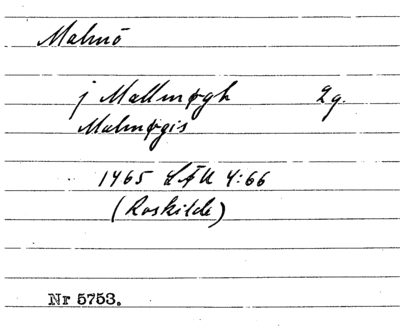 Malmö
j Mallmøgh 2g.
Malmøgis
1465 LÅU 4:66
(Roskilde)
Nr 5753.